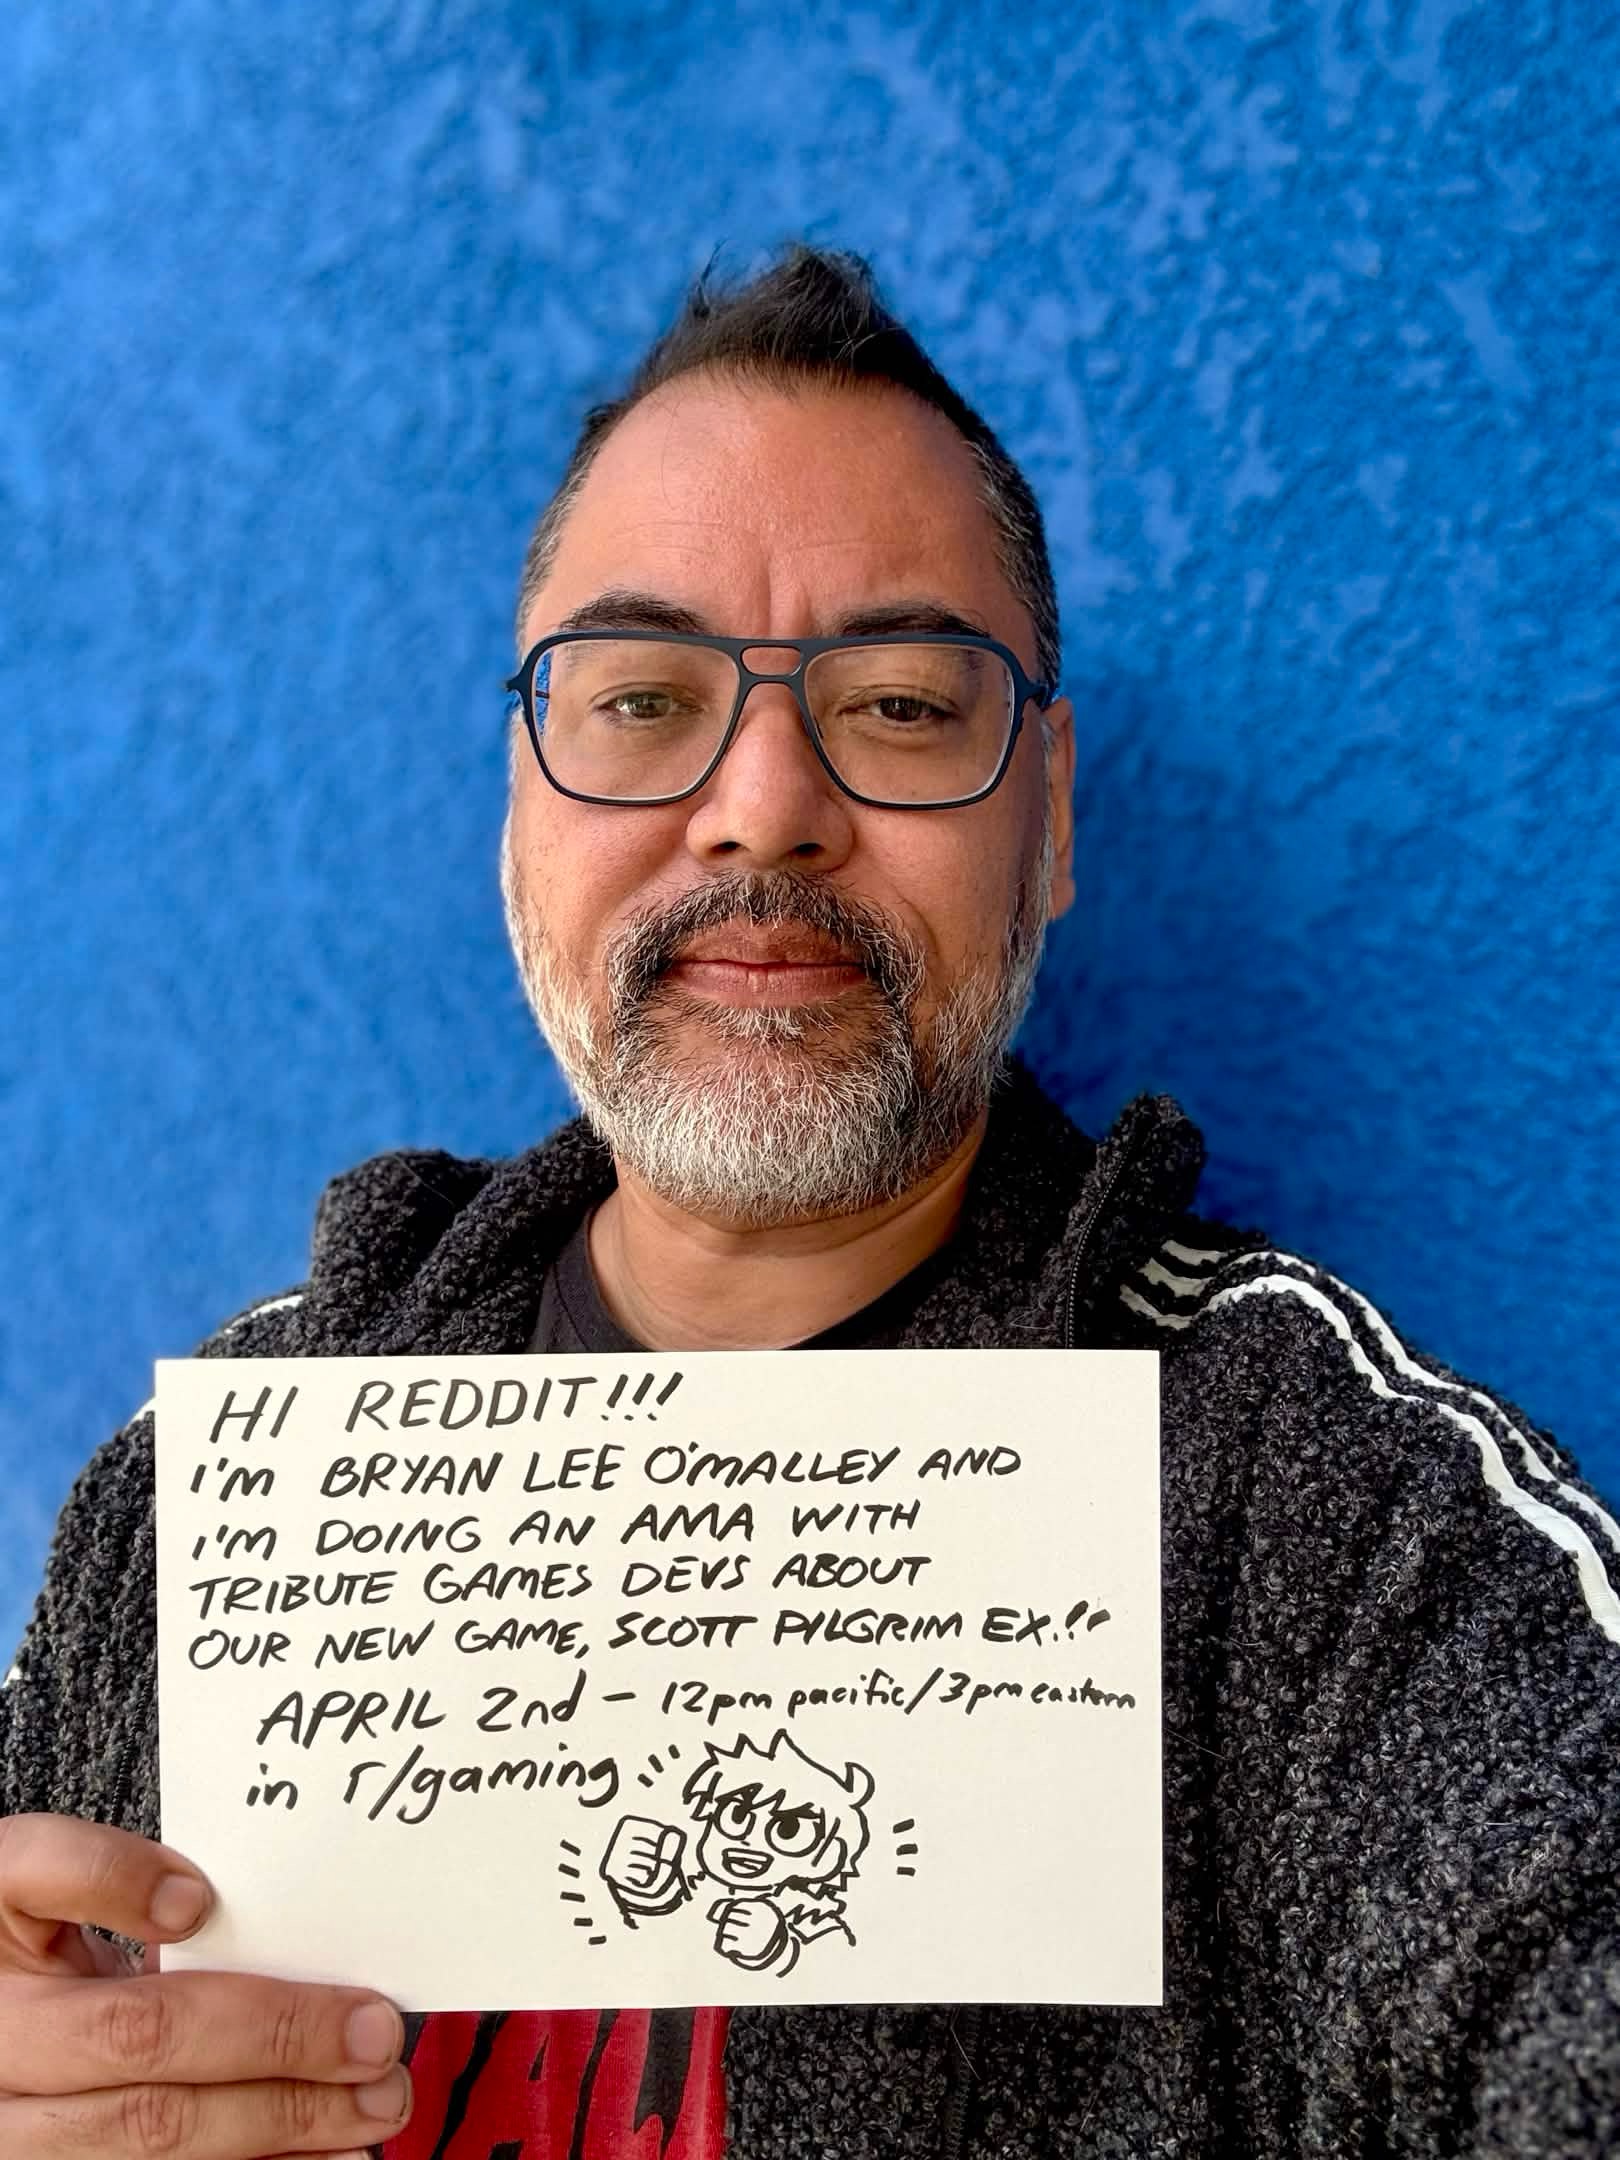 HI REDDIT!!!
I'M BRYAN LEE O'MALLEY AND
I'M DOING AN AMA WITH
TRIBUTE GAMES DEVS ABOUT
OUR NEW GAME, SCOTT PILGRIM EX!!
APRIL 2nd – 12pm pacific/3pm eastern
in r/gaming